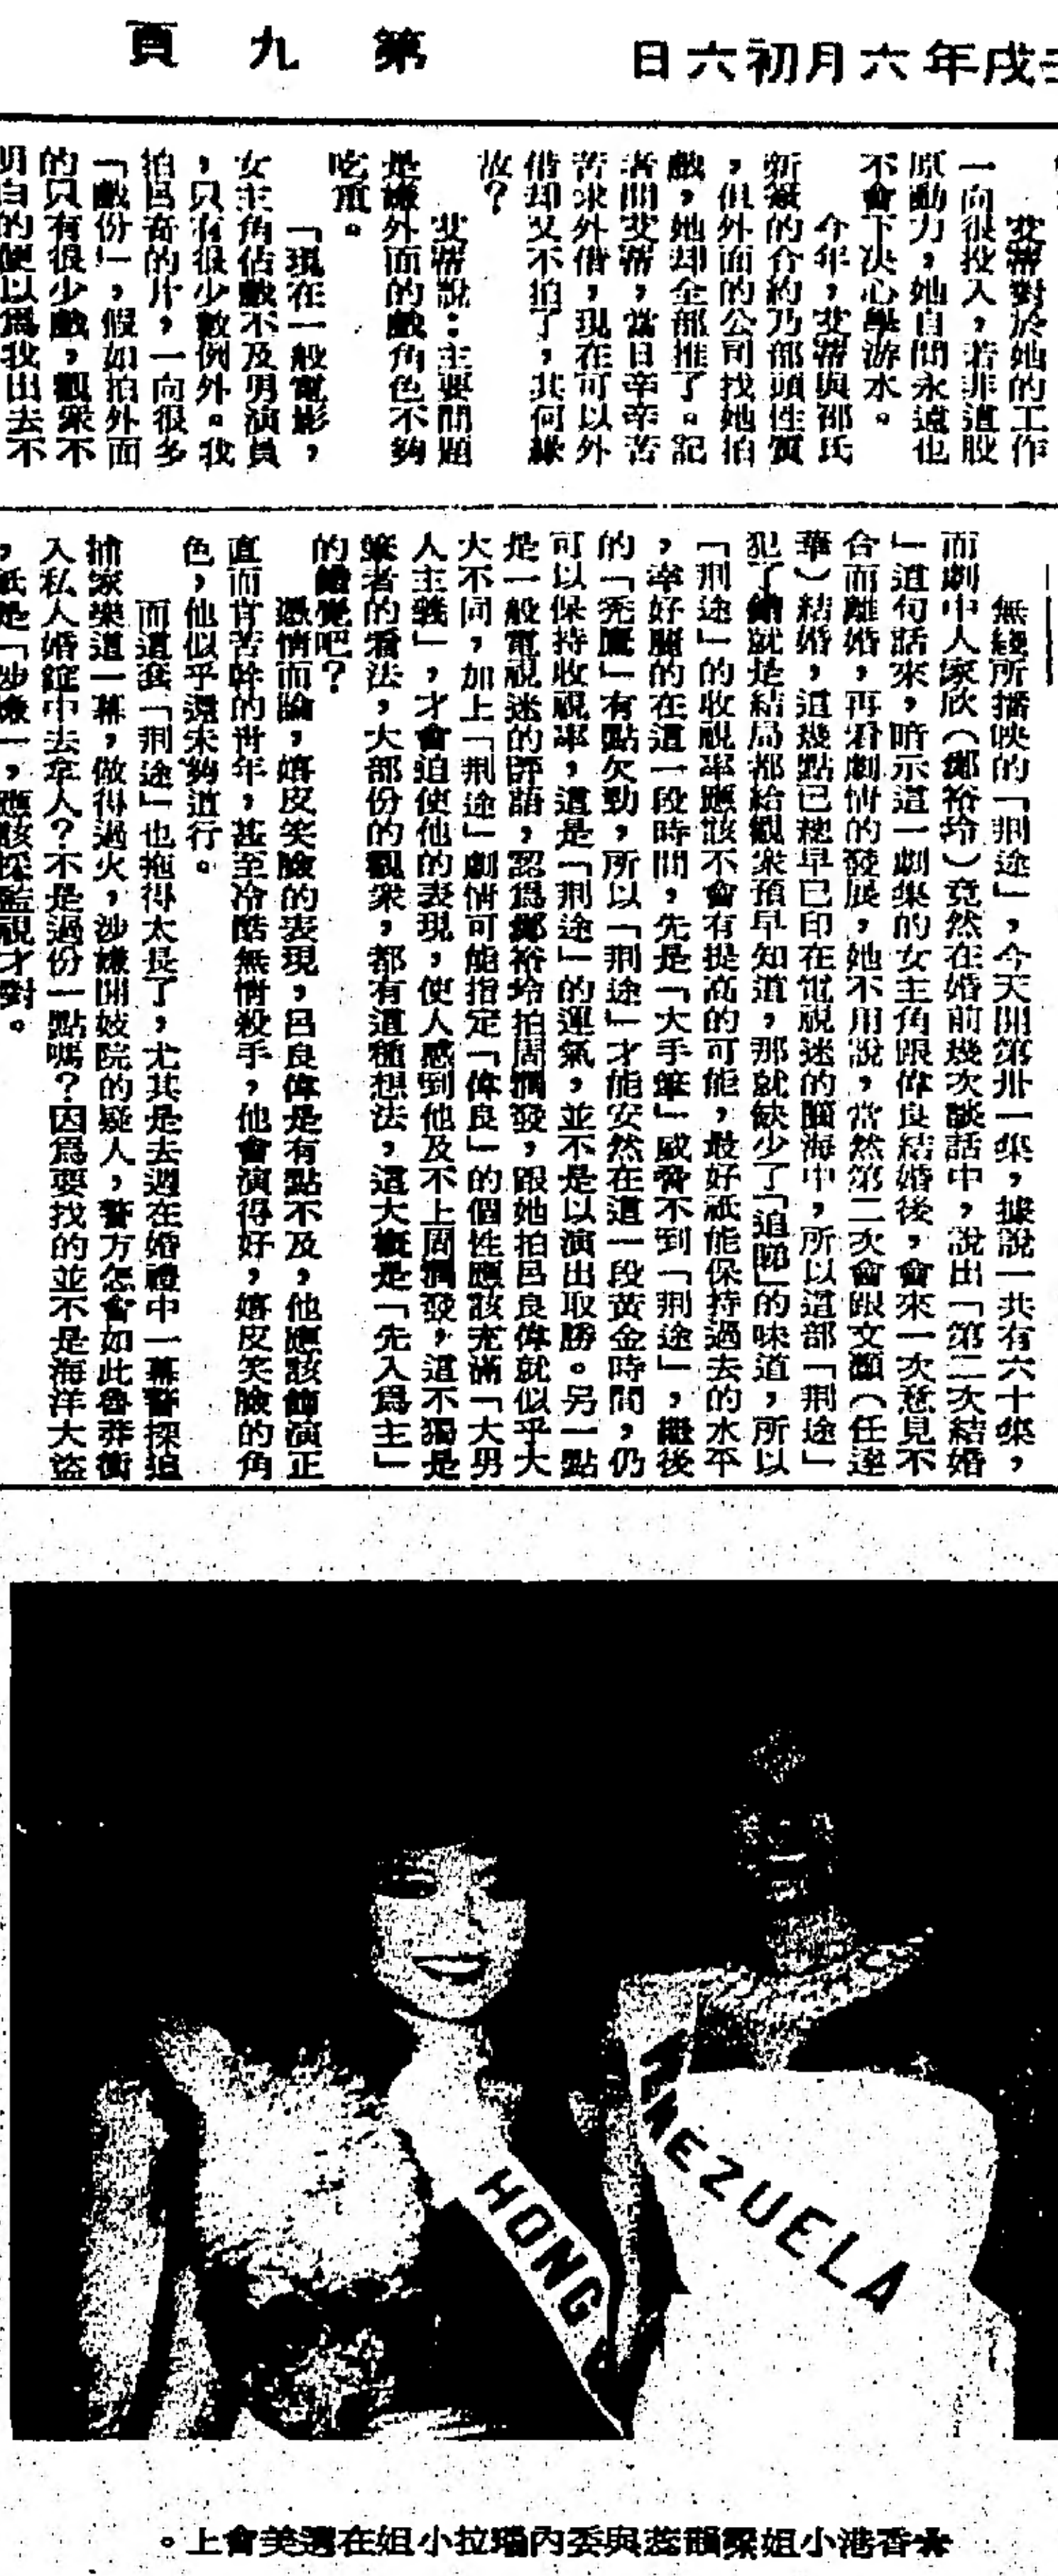 壬戌年六月初六日
第九頁
艾蒂對於她的工作
一向很投入，若非這股
原動力，她自問永遠也
不會下決心學游水。
今年，艾蒂與邵氏
新簽的合約乃部頭性質
，但外面的公司找她拍
戲，她却全部推了。記
者問艾蒂，當日辛辛苦
苦求外借，現在可以外
借却又不拍了，其何緣
故？
艾蒂說：主要問題
是嫌外面的戲角色不夠
吃重。
「現在一般電影，
女主角佔戲不及男演員
，只有很少數例外。我
拍呂奇的片，一向很多
「戲份」，假如拍外面
的只有很少戲，觀衆不
明白的便以爲我出去不
無綫所播映的「荆途」，今天開第卅一集，據說一共有六十集，
而劇中人家欣（鄭裕玲）竟然在婚前幾次談話中，說出「第二次結婚
」這句話來，暗示這一劇集的女主角跟偉良結婚後，會來一次意見不
合而離婚，再看劇情的發展，她不用說，當然第二次會跟文灝（任達
華）結婚，這幾點已穗早已印在電視迷的腦海中，所以這部「荆途」
犯了錯就是結局都給觀衆預早知道，那就缺少了「追睇」的味道，所以
「荆途」的收視率應該不會有提高的可能，最好祇能保持過去的水平
，幸好麗的在這一段時間，先是「大手筆」威脅不到「荆途」，繼後
的「禿鷹」有點欠勁，所以「荆途」才能安然在這一段黃金時間，仍
可以保持收視率，這是「荆途」的運氣，並不是以演出取勝。另一點
是一般電視迷的評語，認爲鄭裕玲拍周潤發，跟她拍呂良偉就似乎大
大不同，加上「荆途」劇情可能指定「偉良」的個性應該充滿「大男
人主義」，才會迫使他的表現，使人感到他及不上周潤發，這不獨是
筆者的看法，大部份的觀衆，都有這種想法，這大概是「先入爲主」
的錯覺吧？
憑情而論，嬉皮笑臉的表現，呂良偉是有點不及，他應該飾演正
直而肯苦幹的青年，甚至冷酷無情殺手，他會演得好，嬉皮笑臉的角
色，他似乎還未夠道行。
而這套「荆途」也拖得太長了，尤其是去週在婚禮中一幕警探追
捕家樂這一幕，做得過火，涉嫌開妓院的疑人，警方怎會如此魯莽衝
入私人婚筵中去拿人？不是過份一點嗎？因爲要找的並不是海洋大盜
，祇是「涉嫌」，應該採監視才對。
VENEZUELA
HONG
★香港小姐梁韻蕊與委內瑞拉小姐在選美會上。